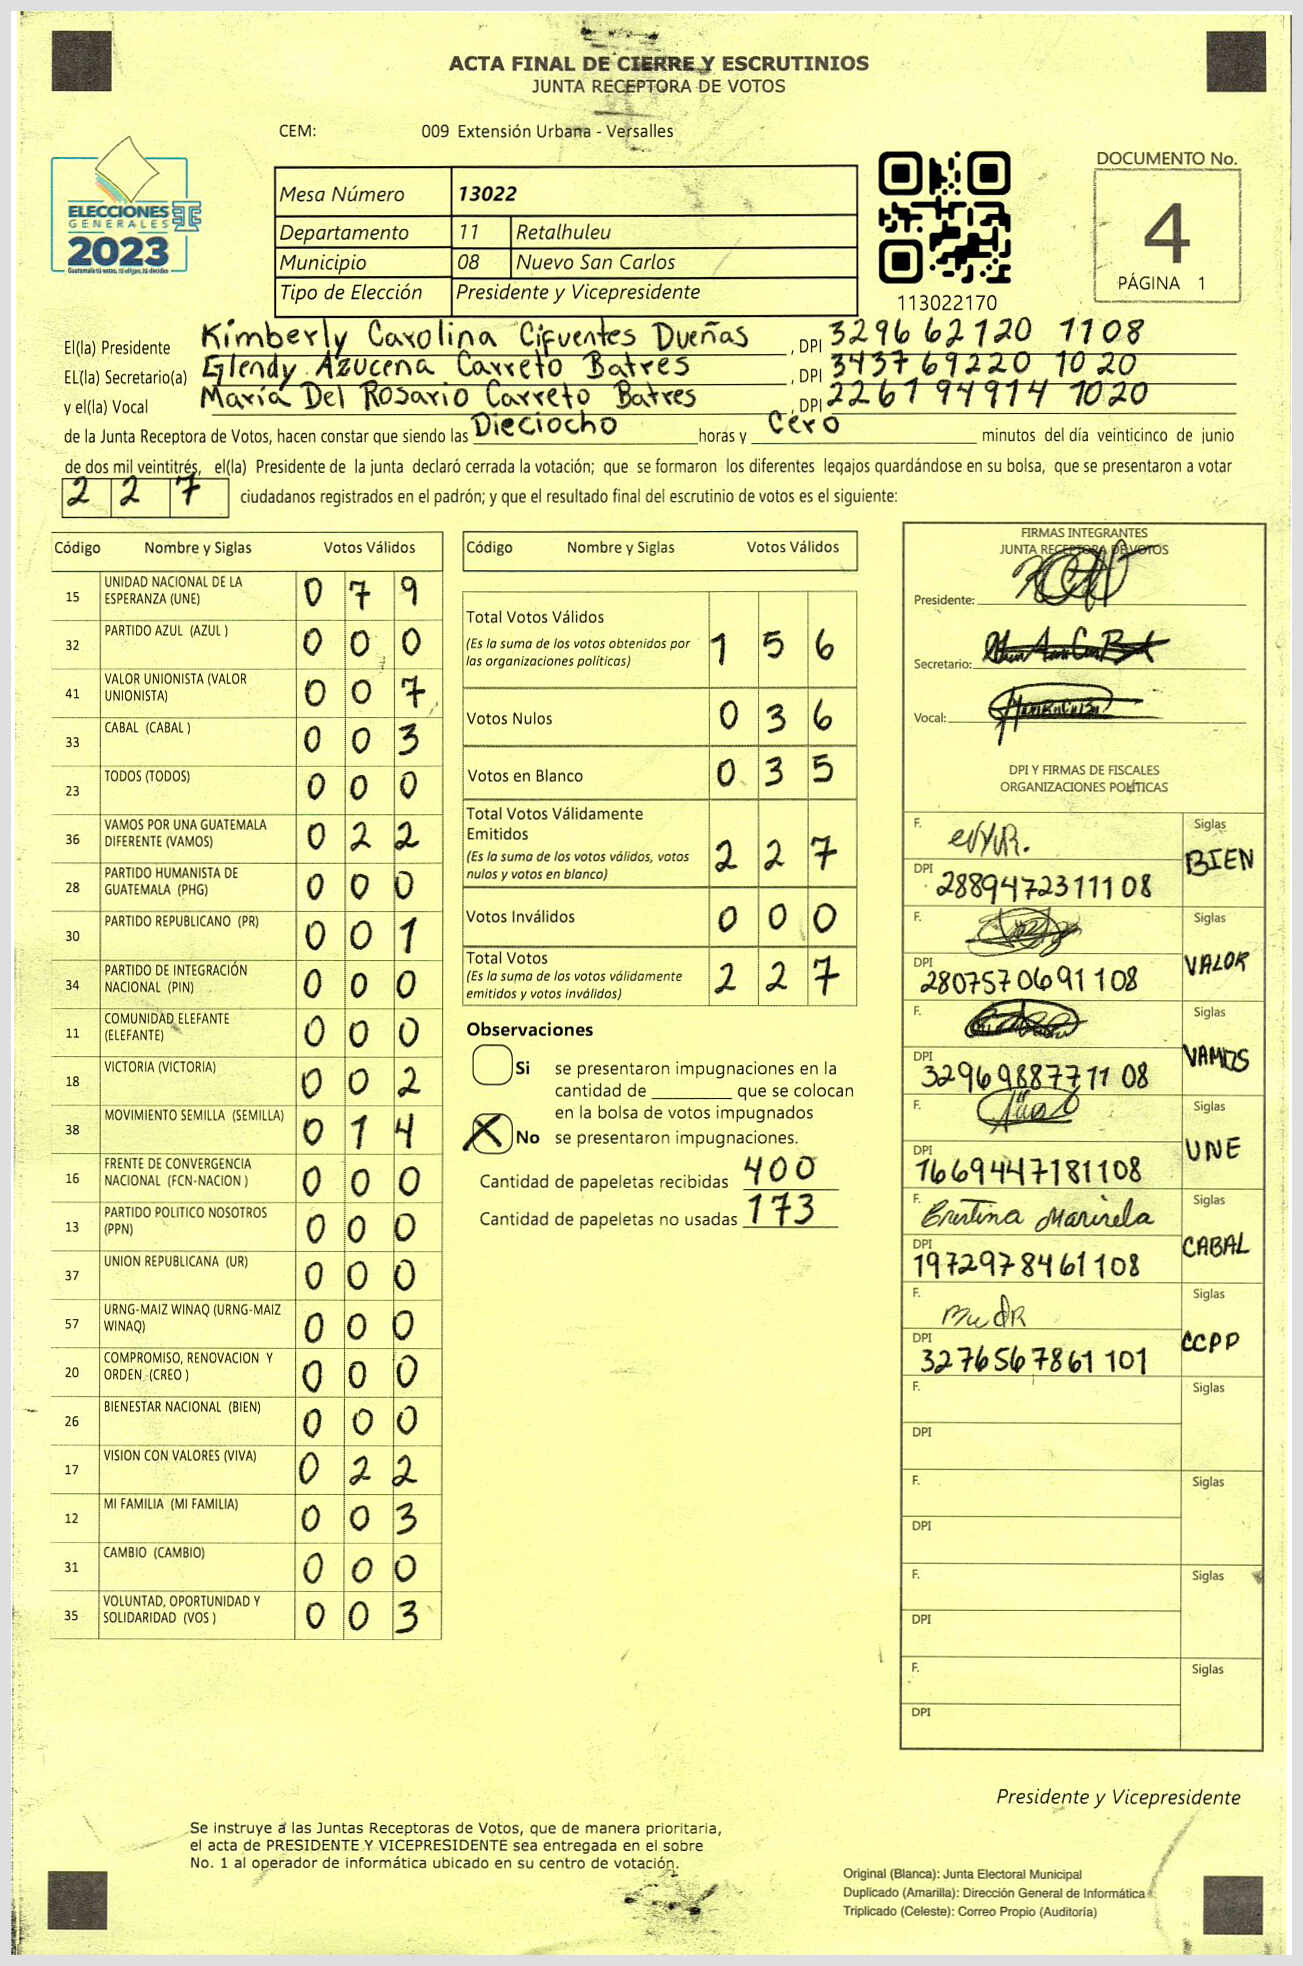 ACTA FINAL DE CIERRE Y ESCRUTINIOS
JUNTA RECEPTORA DE VOTOS
CEM: 009 Extensión Urbana - Versalles
ELECCIONES
GENERALES
2023
Mesa Número 13022
Departamento 11 Retalhuleu
Municipio 08 Nuevo San Carlos
Tipo de Elección Presidente y Vicepresidente
113022170
DOCUMENTO No.
4
PÁGINA 1
El(la) Presidente Kimberly Carolina Cifuentes Dueñas, DPI 3296 62120 1108
EL(la) Secretario(a) Glendy Azucena Carreto Batres, DPI 3437 69220 1020
y el(la) Vocal María Del Rosario Carreto Batres, DPI 2261 94914 1020
de la Junta Receptora de Votos, hacen constar que siendo las Dieciocho horas y Cero minutos del día veinticinco de junio
de dos mil veintitrés, el(la) Presidente de la junta declaró cerrada la votación; que se formaron los diferentes legajos guardándose en su bolsa, que se presentaron a votar
2 2 7 ciudadanos registrados en el padrón; y que el resultado final del escrutinio de votos es el siguiente:
Código Nombre y Siglas Votos Válidos
15 UNIDAD NACIONAL DE LA ESPERANZA (UNE) 0 7 9
32 PARTIDO AZUL (AZUL ) 0 0 0
41 VALOR UNIONISTA (VALOR UNIONISTA) 0 0 7
33 CABAL (CABAL ) 0 0 3
23 TODOS (TODOS) 0 0 0
36 VAMOS POR UNA GUATEMALA DIFERENTE (VAMOS) 0 2 2
28 PARTIDO HUMANISTA DE GUATEMALA (PHG) 0 0 0
30 PARTIDO REPUBLICANO (PR) 0 0 1
34 PARTIDO DE INTEGRACIÓN NACIONAL (PIN) 0 0 0
11 COMUNIDAD ELEFANTE (ELEFANTE) 0 0 0
18 VICTORIA (VICTORIA) 0 0 2
38 MOVIMIENTO SEMILLA (SEMILLA) 0 1 4
16 FRENTE DE CONVERGENCIA NACIONAL (FCN-NACION ) 0 0 0
13 PARTIDO POLITICO NOSOTROS (PPN) 0 0 0
37 UNION REPUBLICANA (UR) 0 0 0
57 URNG-MAIZ WINAQ (URNG-MAIZ WINAQ) 0 0 0
20 COMPROMISO, RENOVACION Y ORDEN (CREO ) 0 0 0
26 BIENESTAR NACIONAL (BIEN) 0 0 0
17 VISION CON VALORES (VIVA) 0 2 2
12 MI FAMILIA (MI FAMILIA) 0 0 3
31 CAMBIO (CAMBIO) 0 0 0
35 VOLUNTAD, OPORTUNIDAD Y SOLIDARIDAD (VOS ) 0 0 3
Código Nombre y Siglas Votos Válidos
Total Votos Válidos 1 5 6
(Es la suma de los votos obtenidos por
las organizaciones políticas)
Votos Nulos 0 3 6
Votos en Blanco 0 3 5
Total Votos Válidamente
Emitidos 2 2 7
(Es la suma de los votos válidos, votos
nulos y votos en blanco)
Votos Inválidos 0 0 0
Total Votos 2 2 7
(Es la suma de los votos válidamente
emitidos y votos inválidos)
Observaciones
Si se presentaron impugnaciones en la
cantidad de ________ que se colocan
en la bolsa de votos impugnados
X No se presentaron impugnaciones.
Cantidad de papeletas recibidas 400
Cantidad de papeletas no usadas 173
FIRMAS INTEGRANTES
JUNTA RECEPTORA DE VOTOS
Presidente:
Secretario:
Vocal:
DPI Y FIRMAS DE FISCALES
ORGANIZACIONES POLÍTICAS
F. Siglas BIEN
DPI 2889472311108
F. Siglas VALOR
DPI 2807570691108
F. Siglas VAMOS
DPI 3296988771108
F. Siglas UNE
DPI 1669447181108
F. Cristina Marisela Siglas CABAL
DPI 1972978461108
F. Siglas CCPP
DPI 3276567861101
F. Siglas
DPI
F. Siglas
DPI
F. Siglas
DPI
F. Siglas
DPI
Presidente y Vicepresidente
Se instruye a las Juntas Receptoras de Votos, que de manera prioritaria,
el acta de PRESIDENTE Y VICEPRESIDENTE sea entregada en el sobre
No. 1 al operador de informática ubicado en su centro de votación.
Original (Blanca): Junta Electoral Municipal
Duplicado (Amarilla): Dirección General de Informática
Triplicado (Celeste): Correo Propio (Auditoría)